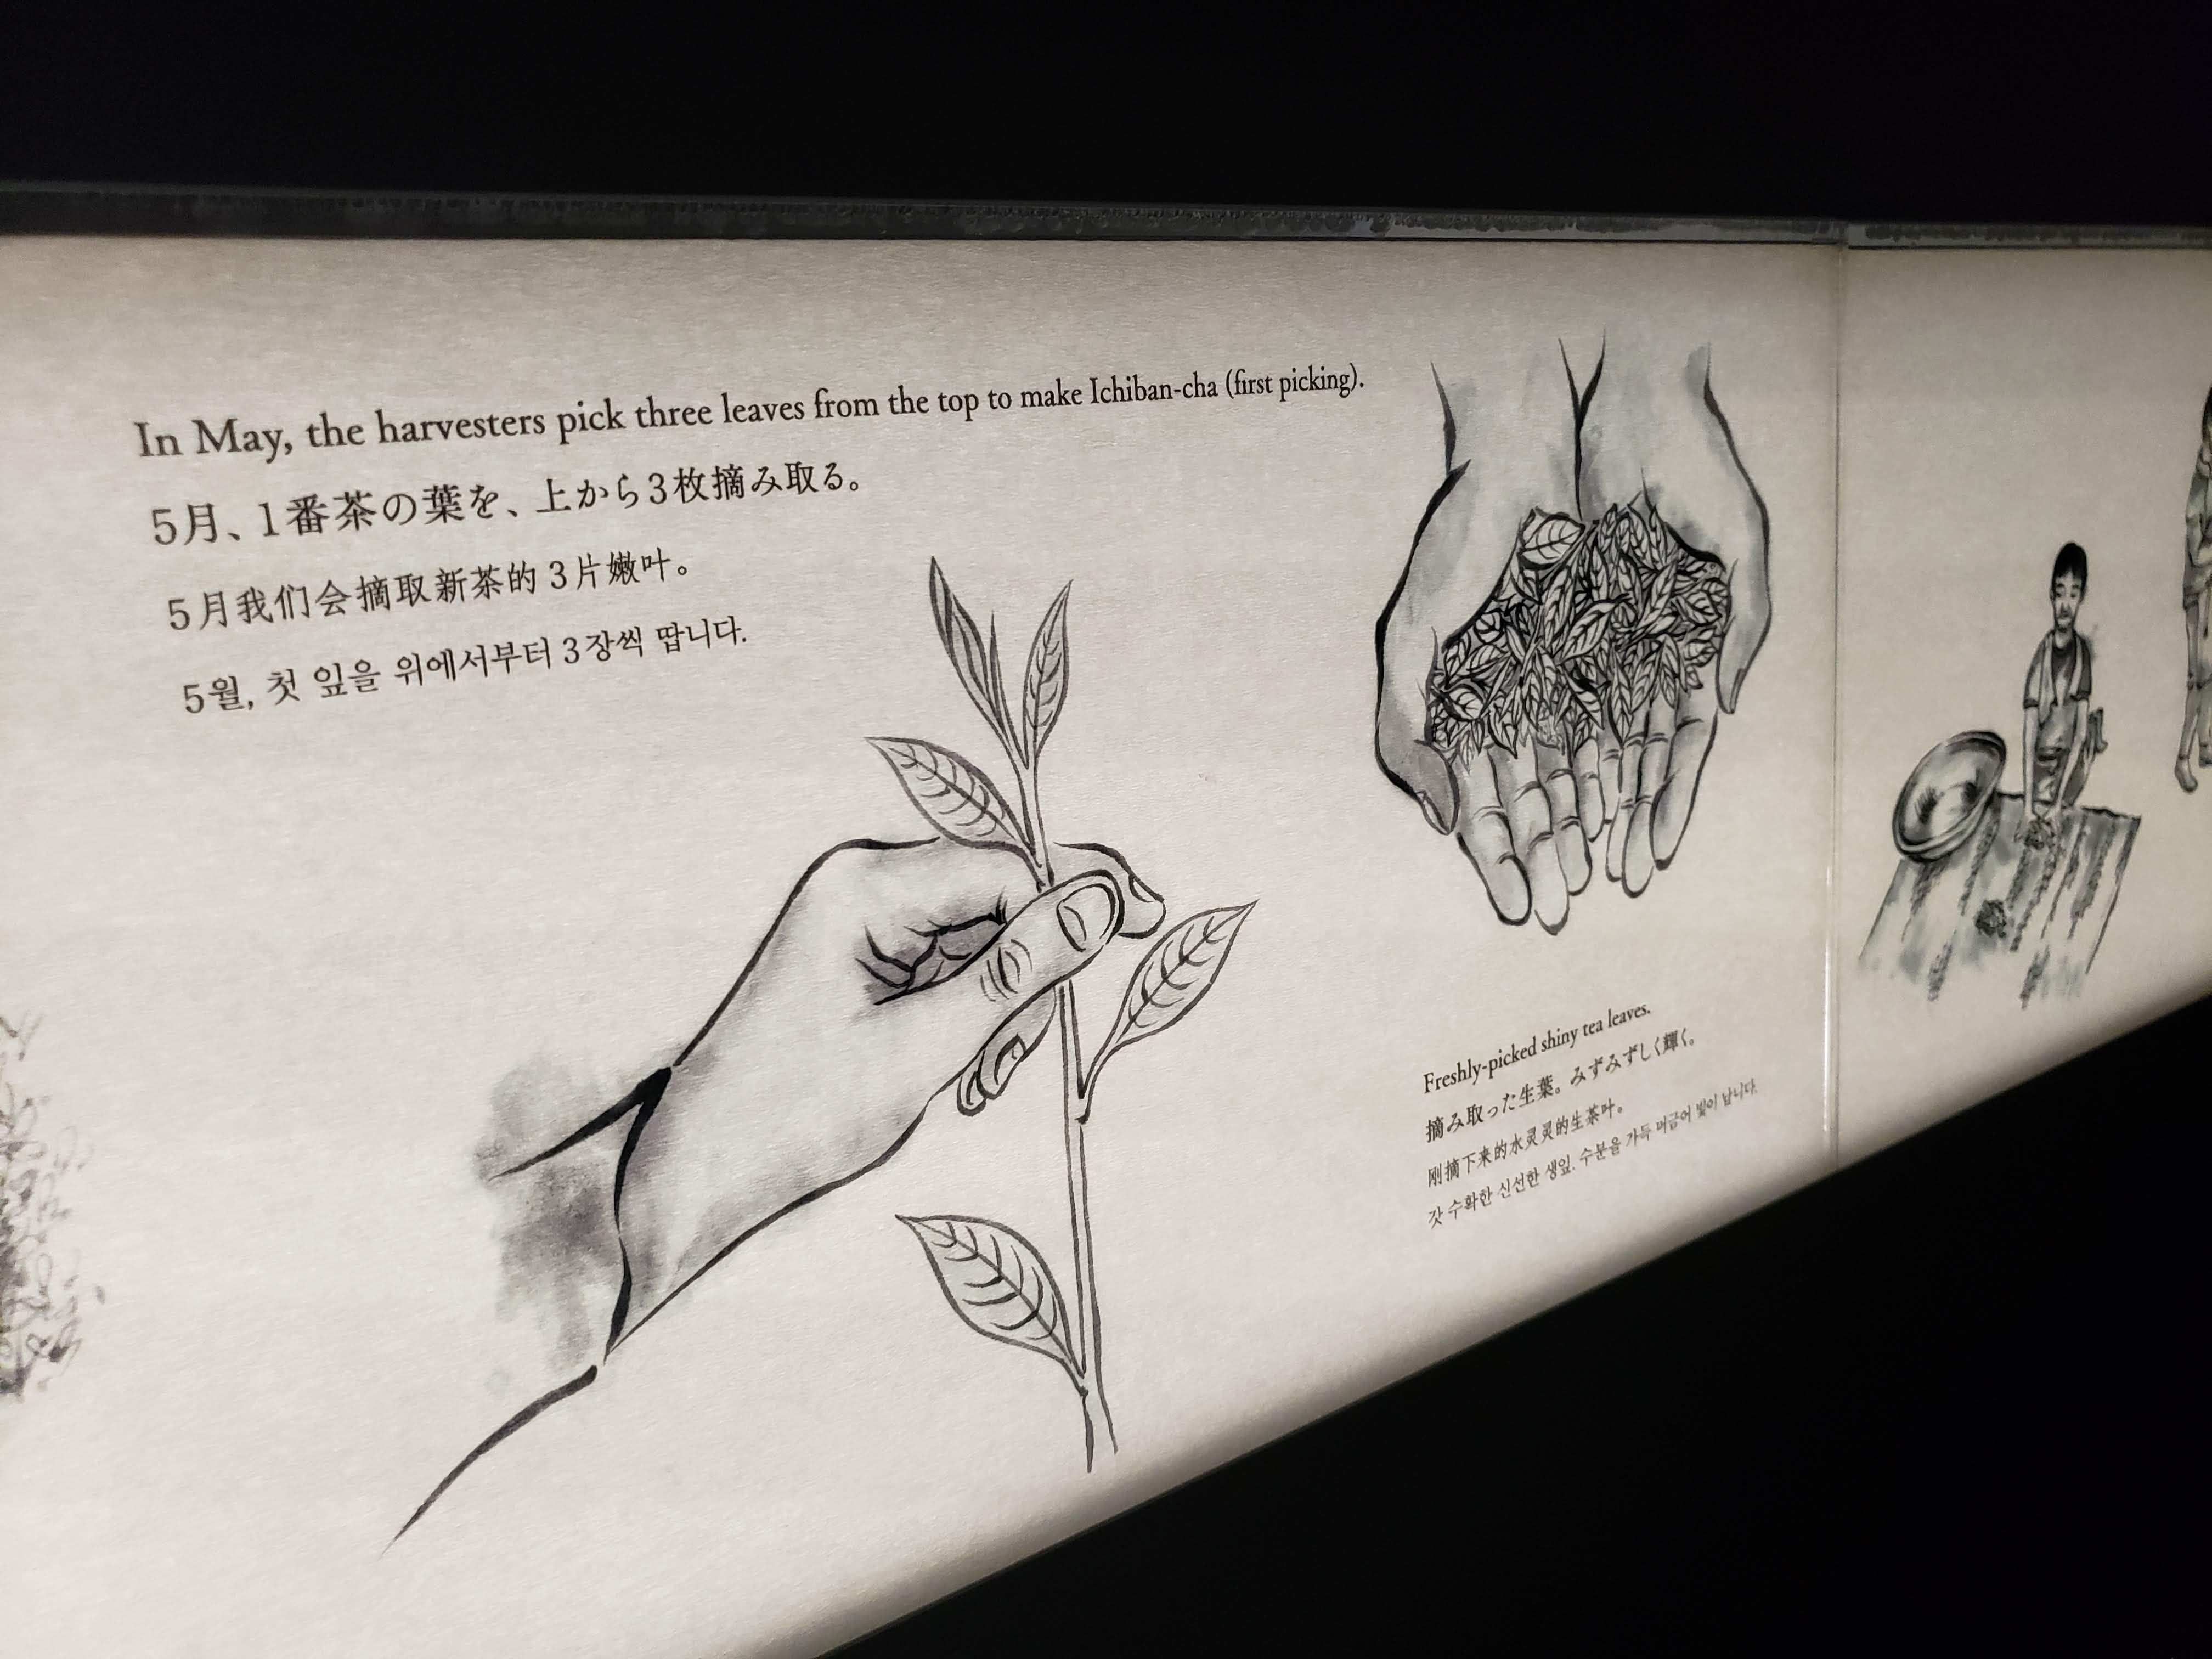 In May, the harvesters pick three leaves from the top to make Ichiban-cha (first picking).
5月、1番茶の葉を、上から3枚摘み取る。
5月我们会摘取新茶的 3片嫩叶。
5월, 첫 잎을 위에서부터 3장씩 땁니다.
Freshly-picked shiny tea leaves.
摘み取った生葉。みずみずしく輝く。
刚摘下来的水灵灵的生茶叶。
갓 수확한 신선한 생잎. 수분을 가득 머금어 빛이 납니다.